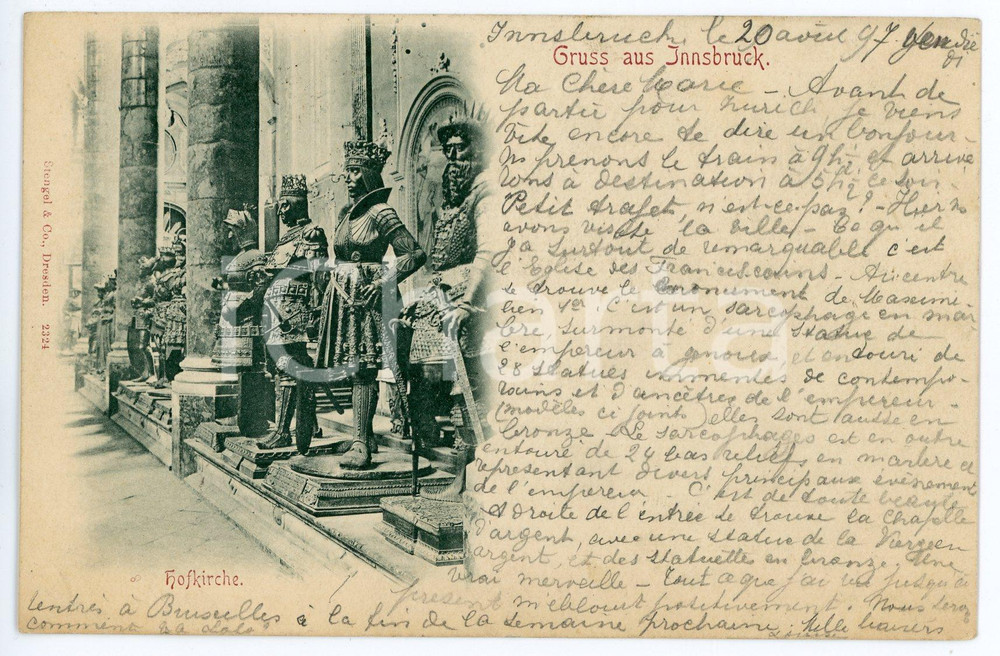 Innsbruck, le 20 août 97 Vendredi
Gruss aus Innsbruck.
Ma Chère Marie - Avant de
partir pour Zurich je viens
vite encore te dire un bonjour -
Ns prenons le train à 9h½ et arrive
rons à destination à 5h½ ce soir
Petit trajet, n'est-ce-pas? - Hier ns
avons visité la ville - Ce qu'il
y a surtout de remarquable c'est
l'Eglise des Franciscains - Au centre
se trouve le monument de Maximi-
lien 1er C'est un sarcophage en mar
bre surmonté d'une statue de
l'empereur à genoux et entouré de
28 statues immenses de contempo-
rains et d'ancêtres de l'empereur -
(modèles ci joints) elles sont toutes en
bronze Le sarcophages est en outre
entouré de 24 bas reliefs en marbre et
représentant divers principaux evénement
de l'empereur - C'est de toute beauté
A Droite de l'entrée se trouve la Chapelle
d'argent, avec une statue de la Vierge en
argent, et des statuettes en bronze. Une
vrai merveille - Tout ce que j'ai vu jusqu'à
présent m'éblouit positivement. Nous serons
rentrés à Bruxelles à la fin de la semaine prochaine. Mille baisers
comment va
Louise
Hofkirche.
Stengel & Co., Dresden. 2324
icharta